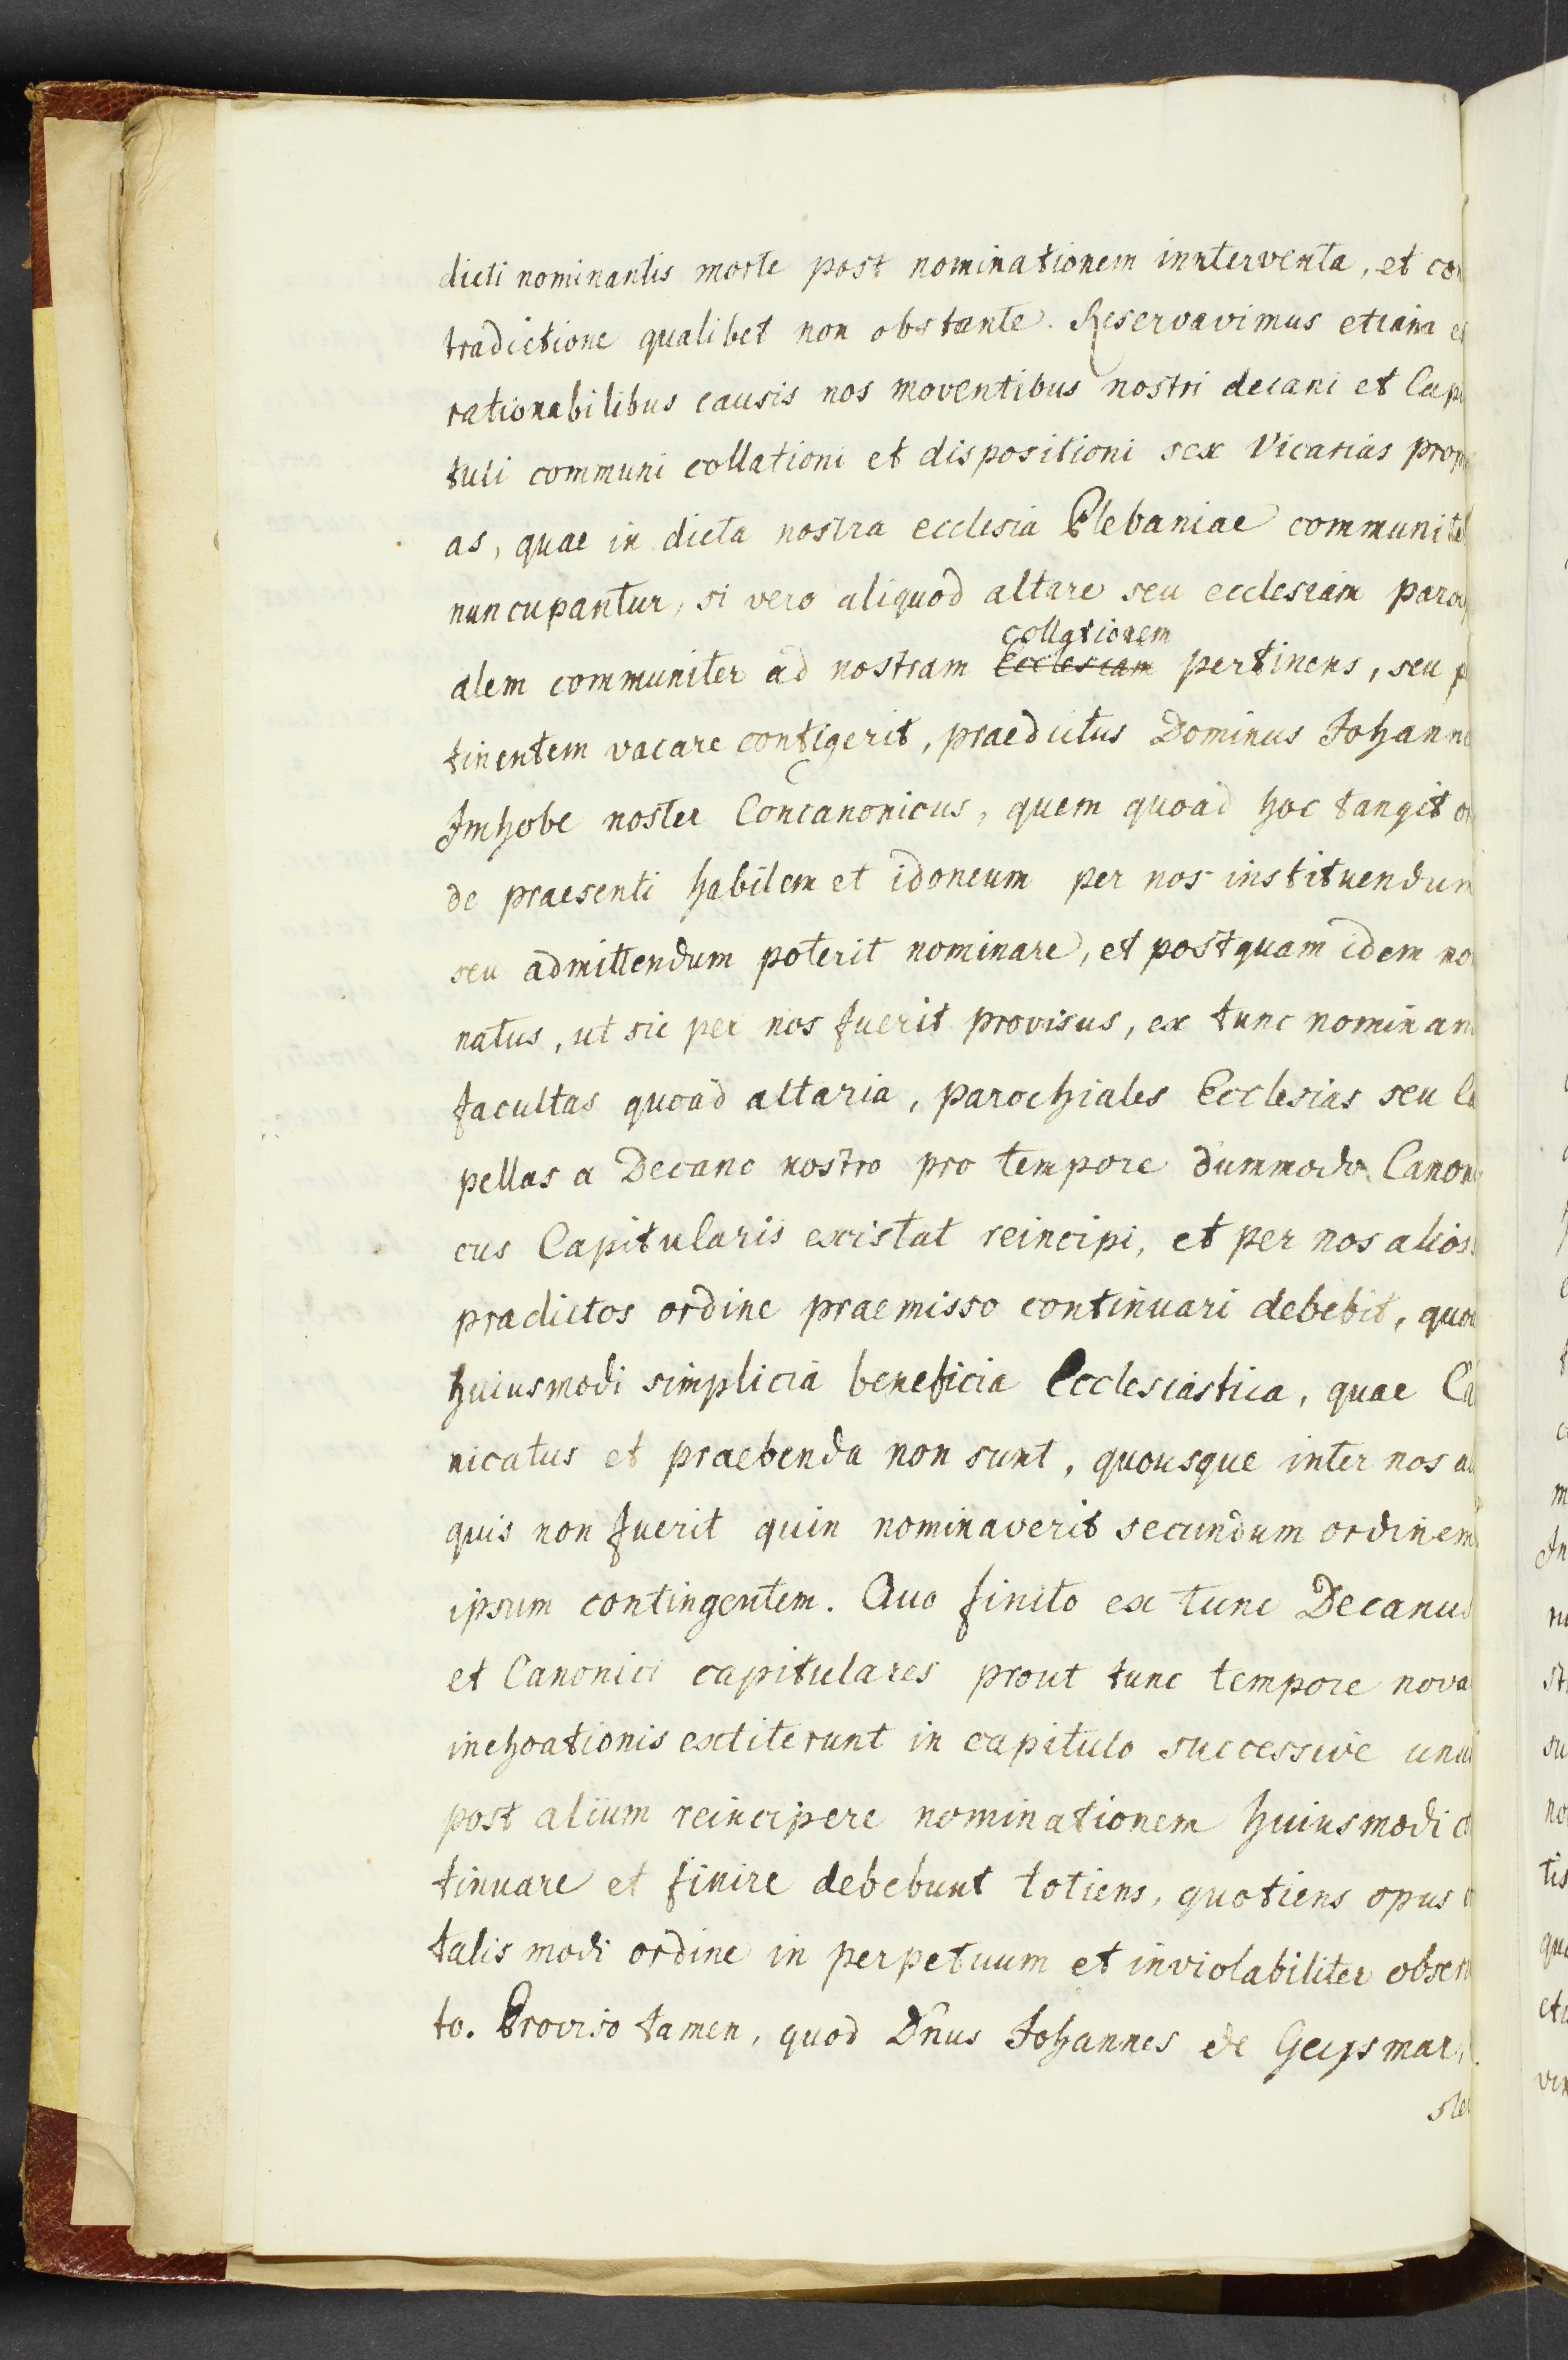 dicti nominantis morte post nominationem innterventa, et con
tradictione qualibet non obstante. Reservavimus etiam e
rationabilibus causis nos moventibus nostri decani et Capi
tuli communi collationi et dispositioni sex Vicarias prop
as, quae in dicta nostra ecclesia Plebaniae communite
nuncupantur, si vero aliquod altare seu ecclesiam paro
collationem
alem communiter ad nostram Ecclesiam pertinens, seu p
tinentem vacare contigerit, praedictus Dominus Johanne
Imhobe noster Concanonicus, quem quoad hoc tangit o
de praesenti habilem et idoneum per nos instituendum
seu admittendum poterit nominare, et postquam idem no
natus, ut sic per nos fuerit provisus, ex tunc nominan
facultas quoad altaria, parochiales Ecclesias seu Ca
pellas a Decano nostro pro tempore dummodo Canoni
cus Capitularis existat reincipi, et per nos alios
pradictos ordine praemisso continuari debebit, quo
huiusmodi simplicia beneficia Ecclesiastica, quae Ca
nicatus et praebenda non sunt, quousque inter nos al
quis non fuerit quin nominaverit secundum ordinem
ipsum contingentem. Quo finito ex tunc Decanus
et Canonici capitulares prout tunc tempore nova
inchoationis extiterunt in capitulo successive unu
post alium reincipere nominationem huiusmodi co
tinuare et finire debebunt totiens, quotiens opus
talis modi ordine in perpetuum et inviolabiliter obser
to. Proviso tamen, quod Dn̄us Johannes de Geysmar,